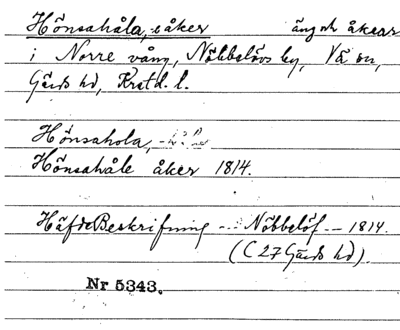 Hönsahåla, -åker äng och åkrar
i Norre vång, Nöbbelövs by, Vä sn,
Gärds hd, Krstd. l.
Hönsahola,
Hönsahåle åker 1814.
HäfdeBeskrifning -- Nöbbelöf -- 1814.
(C 27 Gärds hd).
Nr 5343.